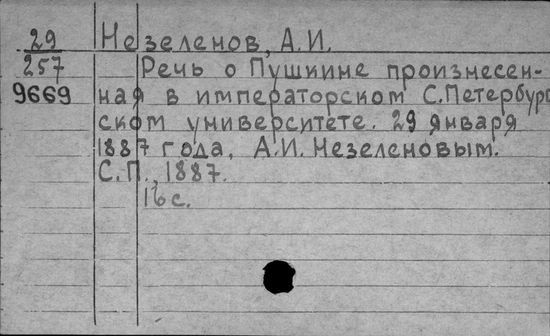 29 Незеленов, А.И.
257 Речь о Пушкине произнесен-
9669 ная в императорском С.Петербург
ском университете. 29 января
1887 года, А.И. Незеленовым.
С.П., 1887.
16 с.